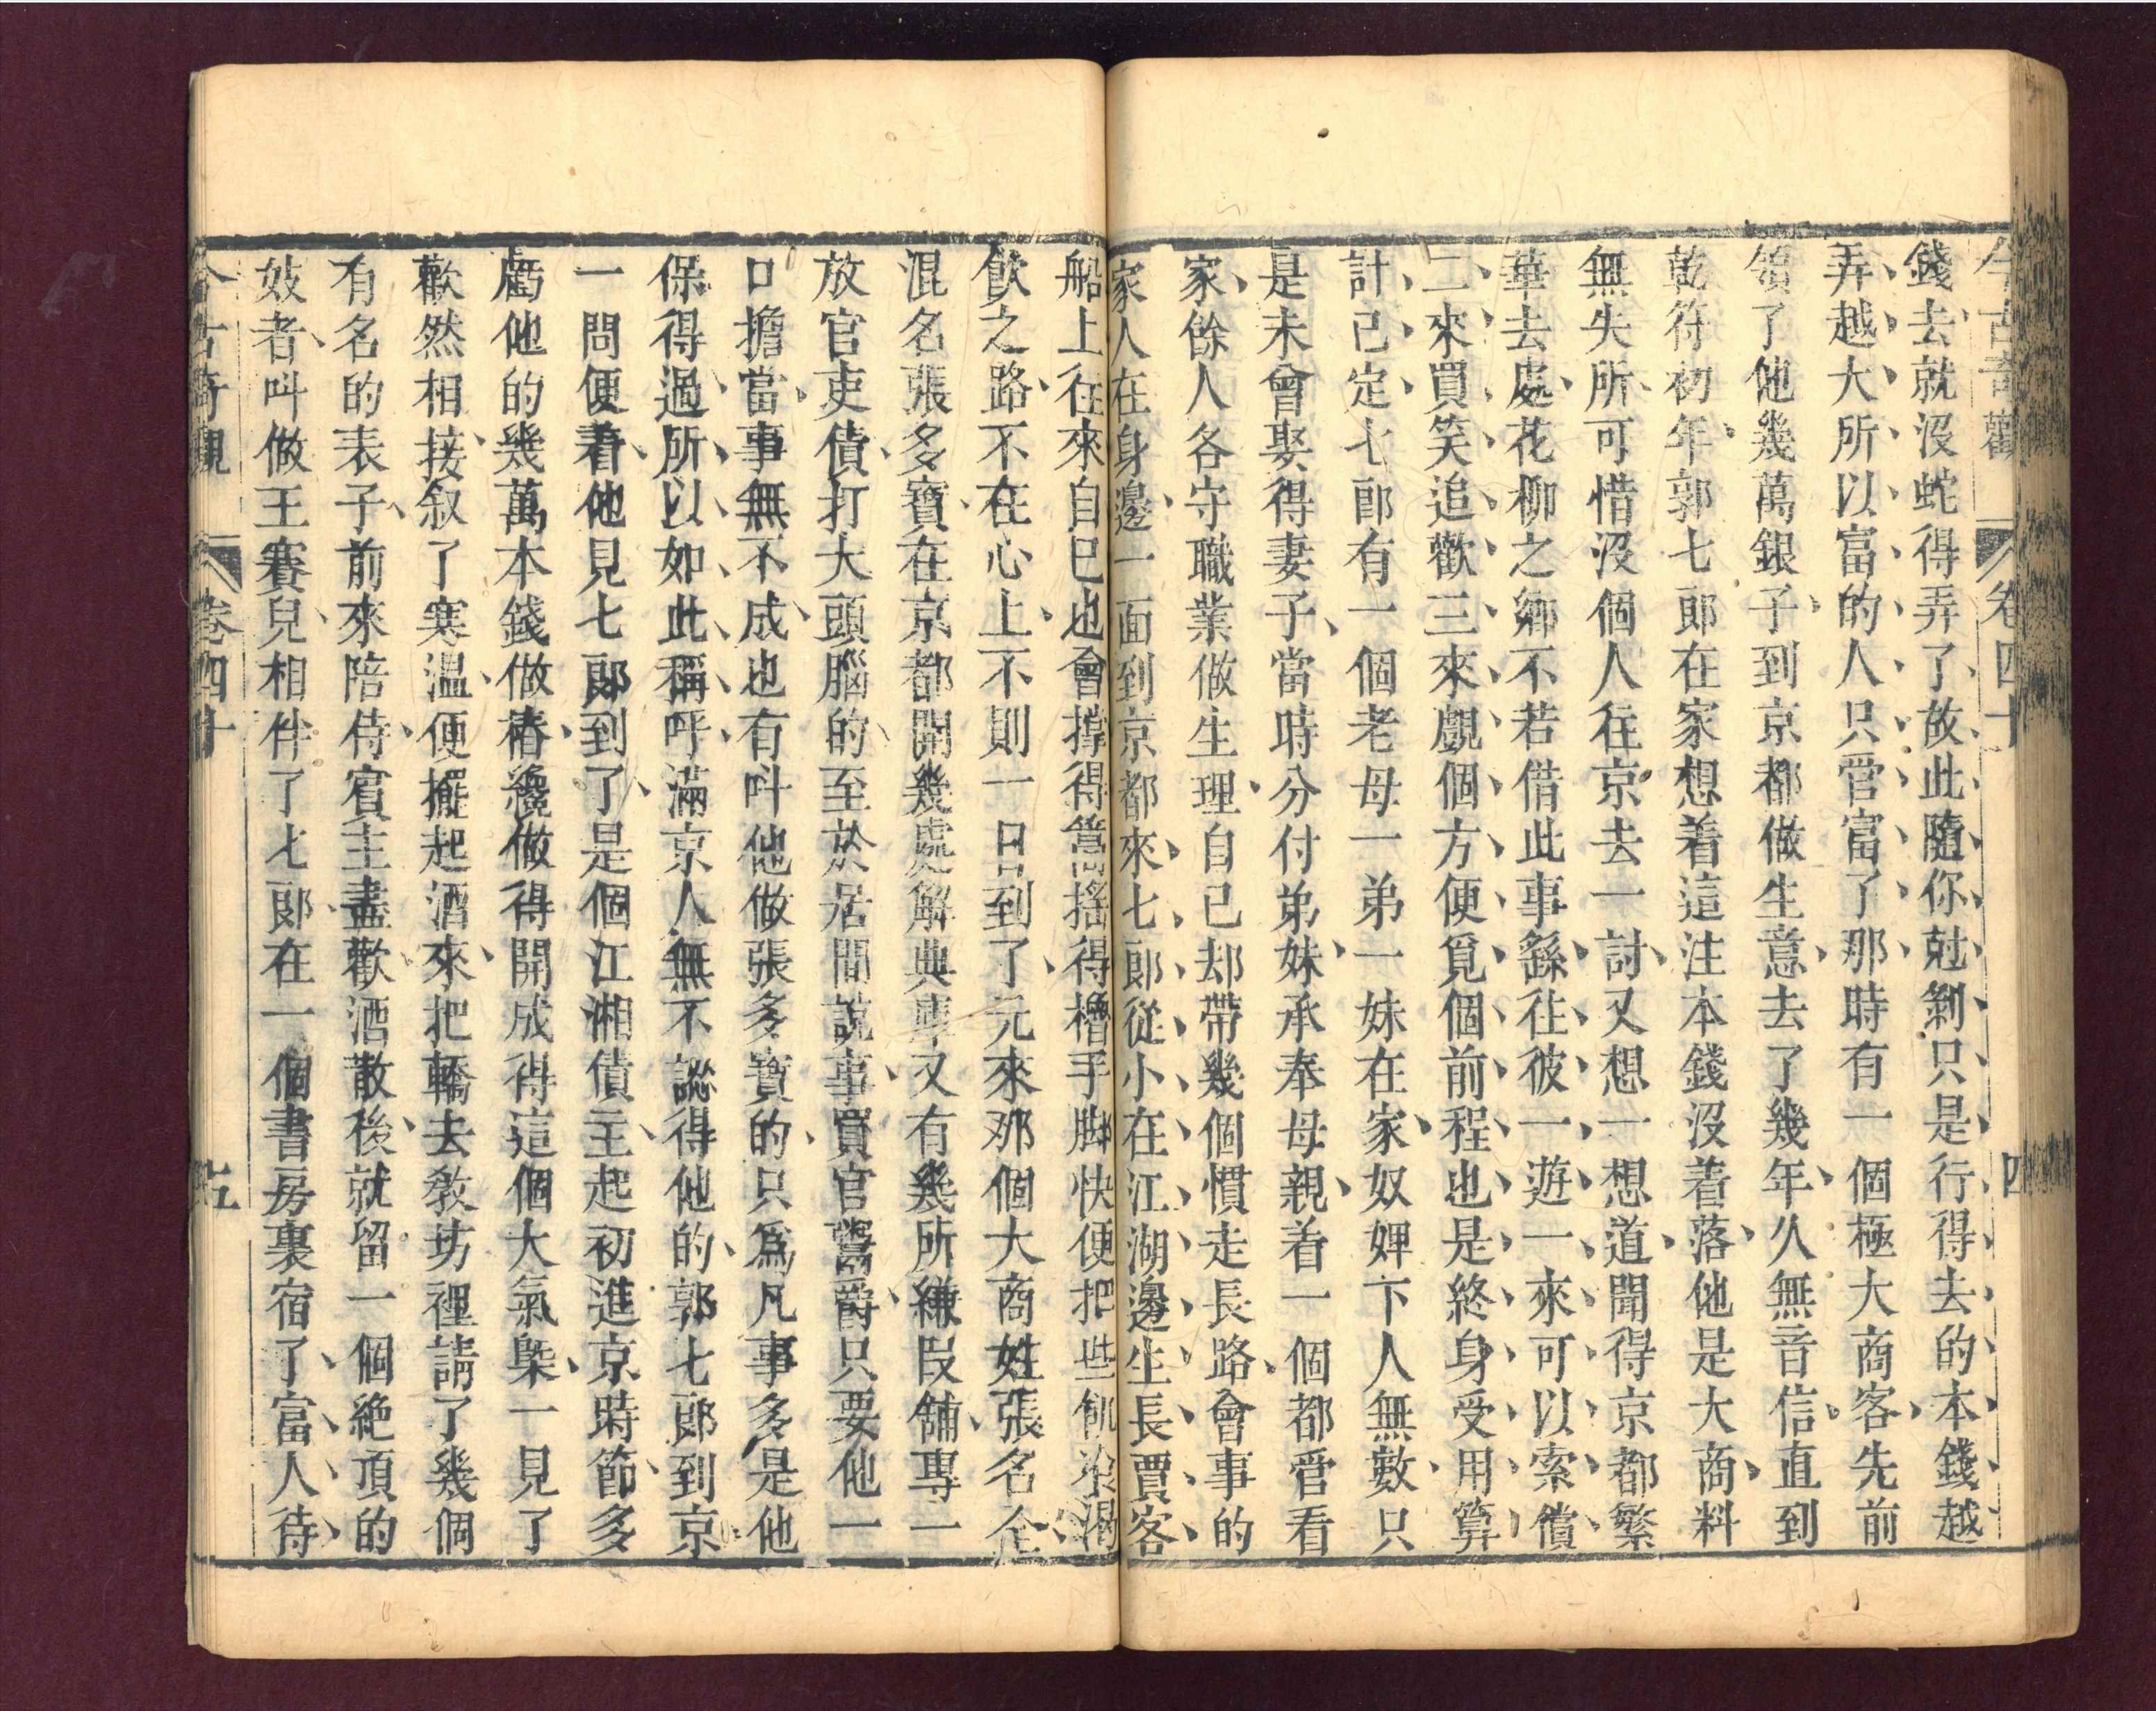 今古奇觀 卷四十 四
錢去就沒蛇得弄了故此隨你尅剝只是行得去的本錢越
弄越大所以富的人只管富了那時有一個極大商客先前
領了他幾萬銀子到京都做生意去了幾年久無音信直到
乾符初年郭七郎在家想着這注本錢沒着落他是大商料
無失所可惜沒個人往京去一討又想一想道聞得京都繁
華去處花柳之鄉不若借此事繇往彼一遊一來可以索債
二來買笑追歡三來覷個方便覓個前程也是終身受用算
計已定七郎有一個老母一弟一妹在家奴婢下人無數只
是未曾娶得妻子當時分付弟妹承奉母親着一個都管看
家餘人各守職業做生理自己却帶幾個慣走長路會事的
家人在身邊一面到京都來七郎從小在江湖邊生長賈客
船上往來自巳也會撐得篙搖得櫓手脚快便把些飢飡渴
飲之路不在心上不則一日到了元來那個大商姓張名全
混名張多寶在京都開幾處解典庫又有幾所縑段舖專一
放官吏債打大頭腦的至於居間說事買官鬻爵只要他一
口擔當事無不成也有叫他做張多寶的只爲凡事多是他
保得過所以如此稱呼滿京人無不認得他的郭七郎到京
一問便着他見七郎到了是個江湘債主起初進京時節多
虧他的幾萬本錢做樁纔做得開成得這個大氣槩一見了
歡然相接叙了寒温便擺起酒來把轎去教坊裡請了幾個
有名的表子前來陪侍賓主盡歡酒散後就留一個絕頂的
妓者叫做王賽兒相伴了七郎在一個書房裏宿了富人待
今古奇觀 卷四十 五